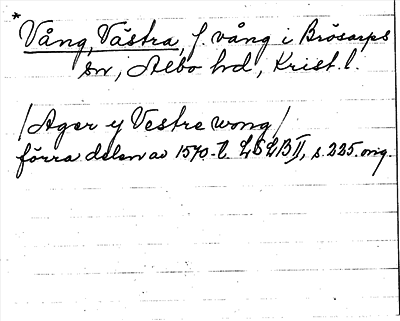 * Vång, Västra, f. vång i Brösarps
sn, Albo hd, Krist. l.
/Ager y Vestre wong/
förra delen av 1570-t. LSLB II, s. 225. orig.